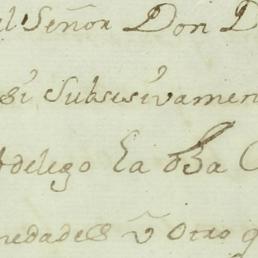 el Señor Don D
si subsesivamen
delego la otra
nedades v Otro q